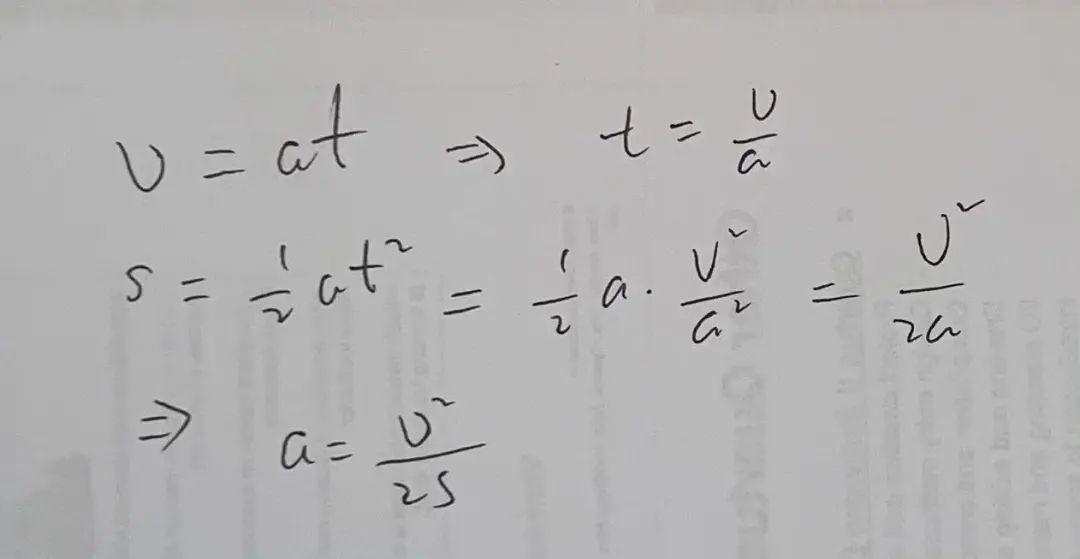 v = at ⇒ t = v/a
s = 1/2 at² = 1/2 a · v²/a² = v²/2a
⇒ a = v²/2s